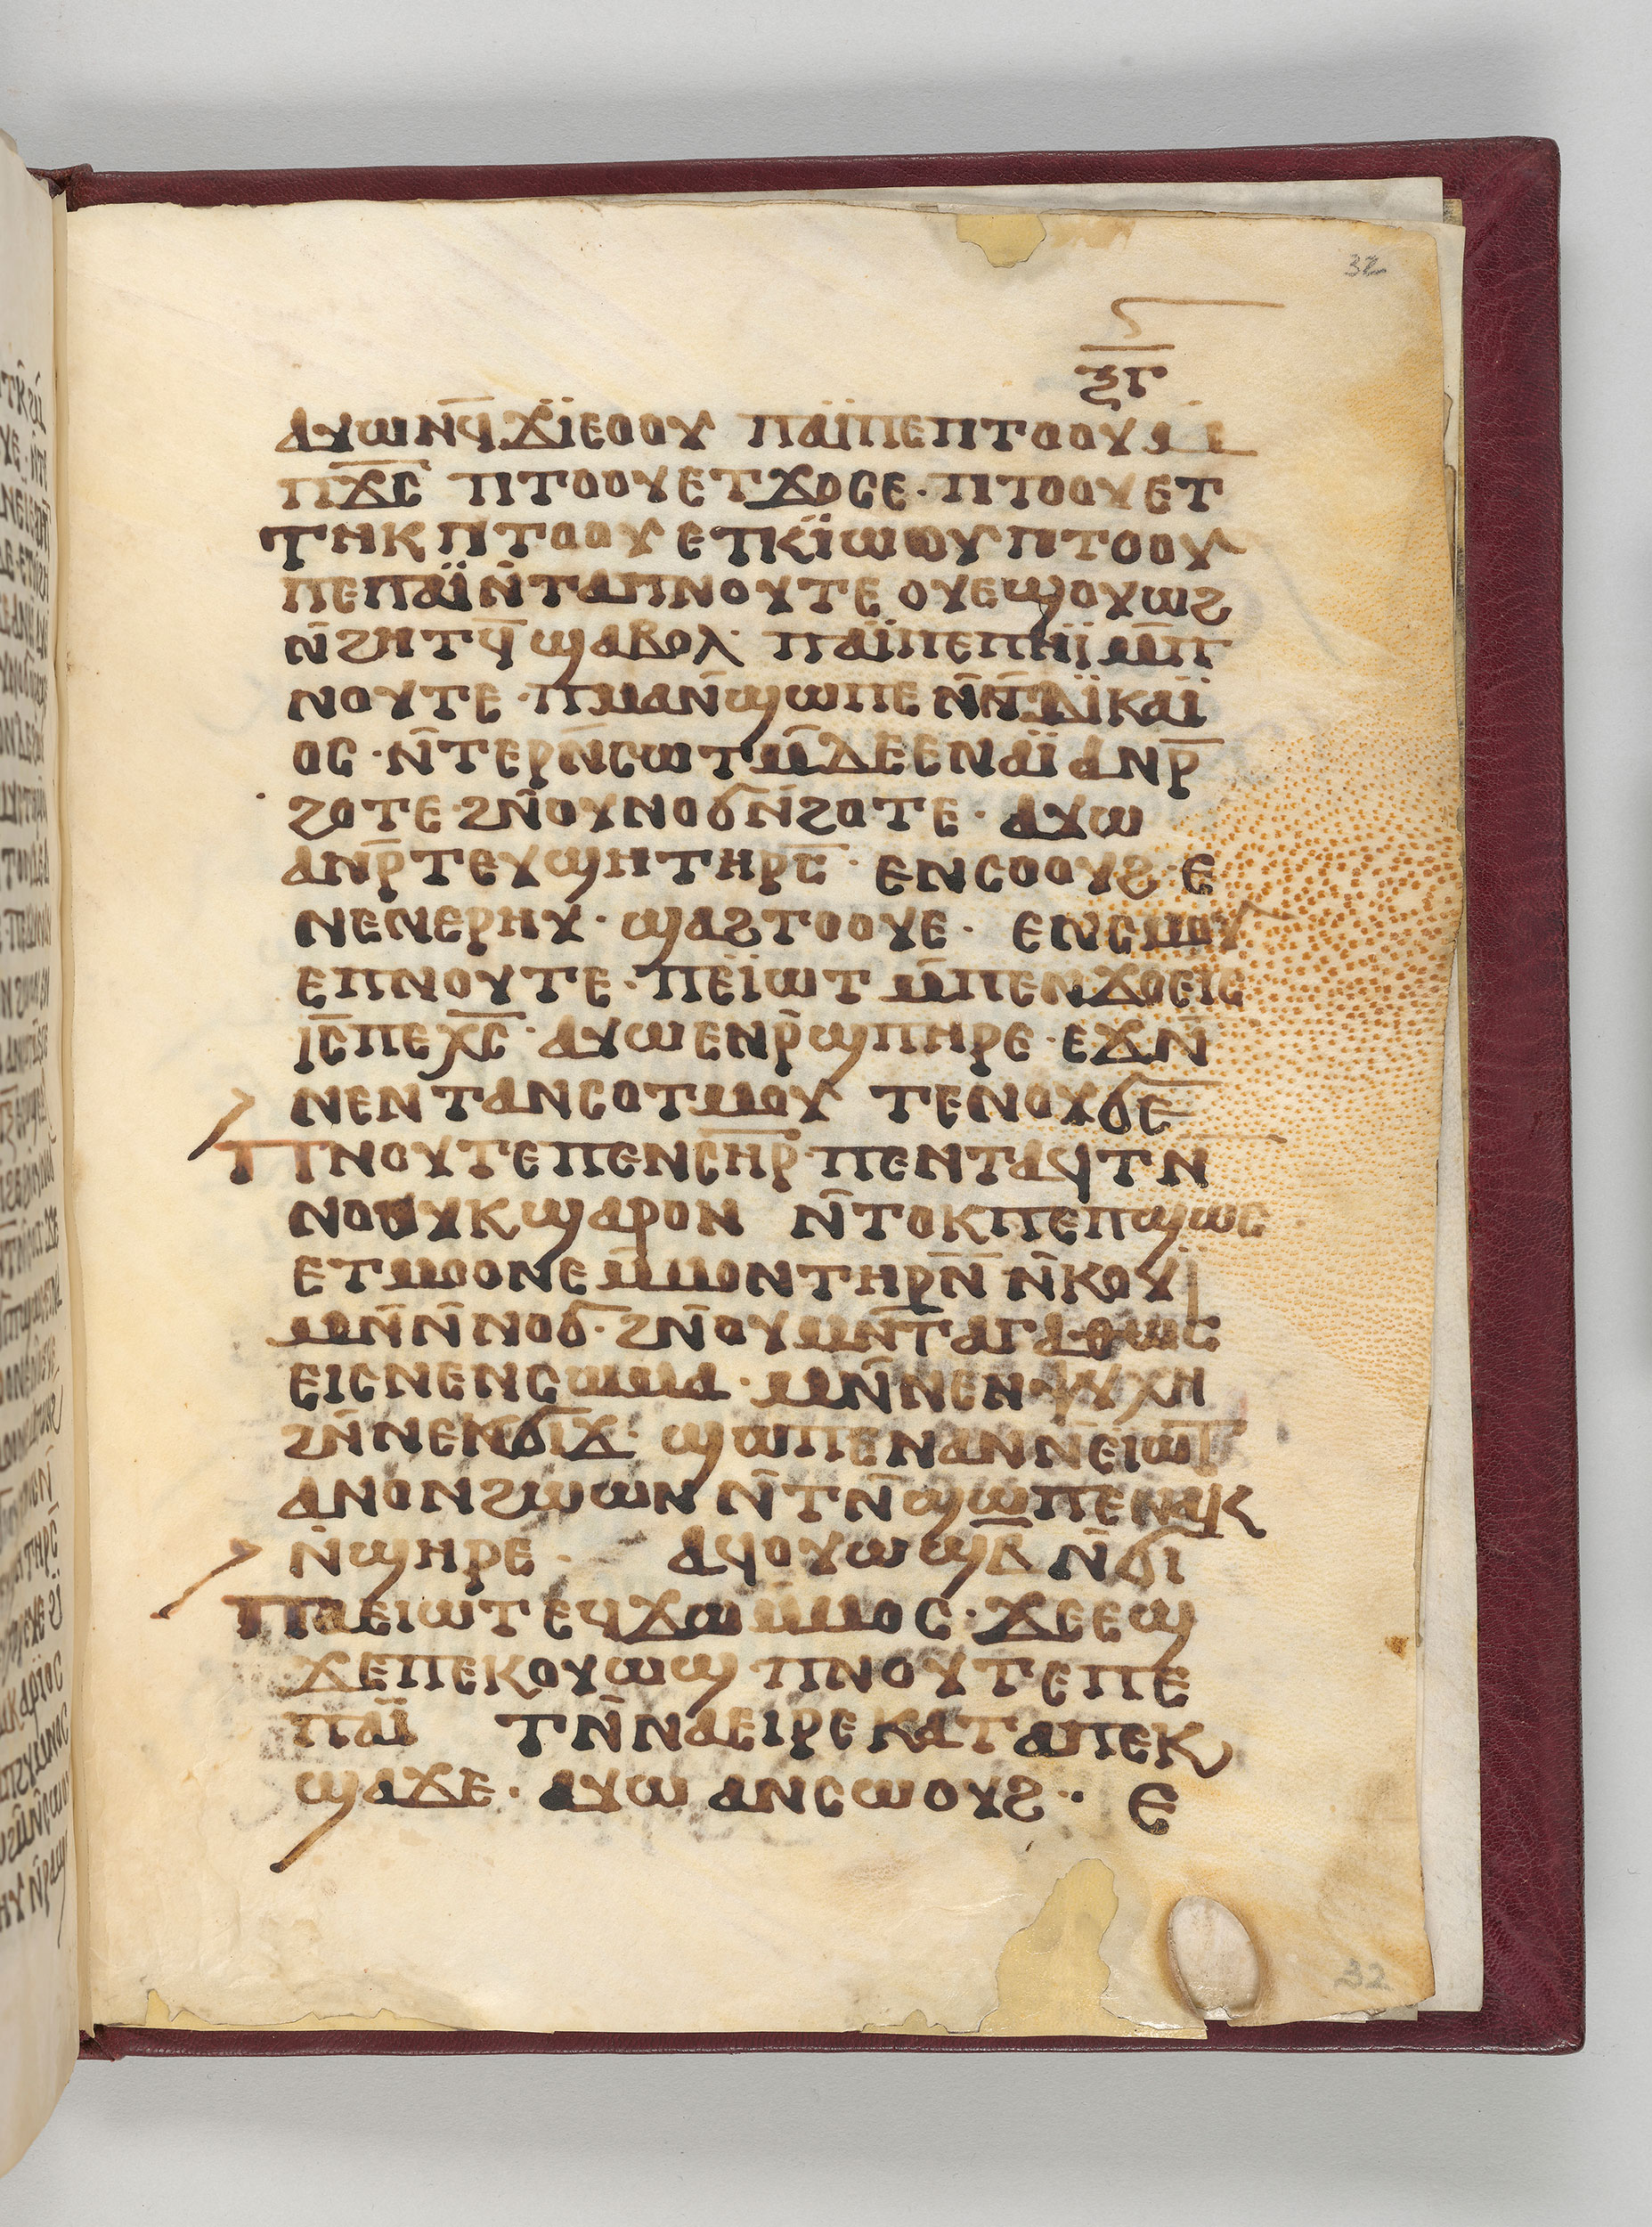 32
ⲝⲅ
ⲁⲩⲱⲛϥ̄ϫⲓ̈ⲉⲟⲟⲩ ⲡⲁⲓ̈ⲡⲉⲡⲧⲟⲟⲩⲙ̄
ⲡϫ̄ⲥ̄ ⲡⲧⲟⲟⲩⲉⲧϫⲟⲥⲉ· ⲡⲧⲟⲟⲩⲉⲧ
ⲧⲏⲕ ⲡⲧⲟⲟⲩ ⲉⲧⲕⲓ̈ⲱⲟⲩ ⲡⲧⲟⲟⲩ
ⲡⲉⲡⲁⲓ̈ⲛ̄ⲧⲁⲡⲛⲟⲩⲧⲉ ⲟⲩⲉϣⲟⲩⲱϩ
ⲛ̄ϩⲏⲧϥ̄ϣⲁⲃⲟⲗ· ⲡⲁⲓ̈ⲡⲉⲡⲏⲓ̈ ⲙ̄ⲡ
ⲛⲟⲩⲧⲉ· ⲡⲙⲁⲛ̄ϣⲱⲡⲉ ⲛ̄ⲛ̄ⲇⲓ̈ⲕⲁⲓ̈
ⲟⲥ· ⲛ̄ⲧⲉⲣⲛ̄ⲥⲱⲧⲙ̄ⲇⲉⲉⲛⲁⲓ̈ ⲁⲛⲣ̄
ϩⲟⲧⲉ· ϩⲛ̄ⲟⲩⲛⲟϭⲛ̄ϩⲟⲧⲉ· ⲁⲩⲱ
ⲁⲛⲣ̄ⲧⲉⲩϣⲏⲧⲏⲣⲥ̄· ⲉⲛⲥⲟⲟⲩϩ· ⲉ
ⲛⲉⲛⲉⲣⲏⲩ· ϣⲁϩⲧⲟⲟⲩⲉ· ⲉⲛⲥⲙⲟⲩ
ⲉⲡⲛⲟⲩⲧⲉ· ⲡⲉⲓ̈ⲱⲧ ⲙ̄ⲡⲉⲛϫⲟⲉⲓⲥ
ⲓ̄ⲥ̄ⲡⲉⲭ̄ⲥ̄· ⲁⲩⲱⲉⲛⲣ̄ϣⲡⲏⲣⲉ· ⲉϫⲛ̄
ⲛⲉⲛⲧⲁⲛⲥⲟⲧⲙⲟⲩ ⲧⲉⲛⲟⲩϭⲉ
ⲡⲛⲟⲩⲧⲉⲡⲉⲛⲥ̄ⲏ̄ⲣ̄· ⲡⲉⲛⲧⲁϥⲧⲛ̄
ⲛⲟⲟⲩⲕϣⲁⲣⲟⲛ ⲛ̄ⲧⲟⲕⲡⲉⲡϣⲱⲥ
ⲉⲧⲙⲟⲟⲛⲉⲙ̄ⲙⲟⲛⲧⲏⲣⲛ̄ ⲛ̄ⲕⲟⲩⲓ̈
ⲙⲛ̄ⲛ̄ⲛⲟϭ· ϩⲛ̄ⲟⲩⲙⲛ̄ⲧⲁⲅⲁⲑⲱⲥ
ⲉⲓⲥⲛⲉⲛⲥⲱⲙⲁ· ⲙⲛ̄ⲛⲉⲛⲯⲩⲭⲏ
ϩⲛ̄ⲛⲉⲕϭⲓϫ· ϣⲱⲡⲉⲛⲁⲛⲛ̄ⲉⲓⲱⲧ
ⲁⲛⲟⲛϩⲱⲱⲛ ⲛ̄ⲧⲛ̄ϣⲱⲡⲉⲛⲁⲕ
ⲛ̄ϣⲏⲣⲉ· ⲁϥⲟⲩⲱϣⲃ̄ ⲛ̄ϭⲓ
ⲡⲁⲉⲓⲱⲧⲉϥϫⲱⲙ̄ⲙⲟⲥ· ϫⲉⲉϣ
ϫⲉⲡⲉⲕⲟⲩⲱϣ ⲡⲛⲟⲩⲧⲉⲡⲉ
ⲡⲁⲓ̈ ⲧⲛ̄ⲛⲁⲉⲓⲣⲉⲕⲁⲧⲁⲡⲉⲕ
ϣⲁϫⲉ· ⲁⲩⲱ ⲁⲛⲥⲱⲟⲩϩ· ⲉ
32